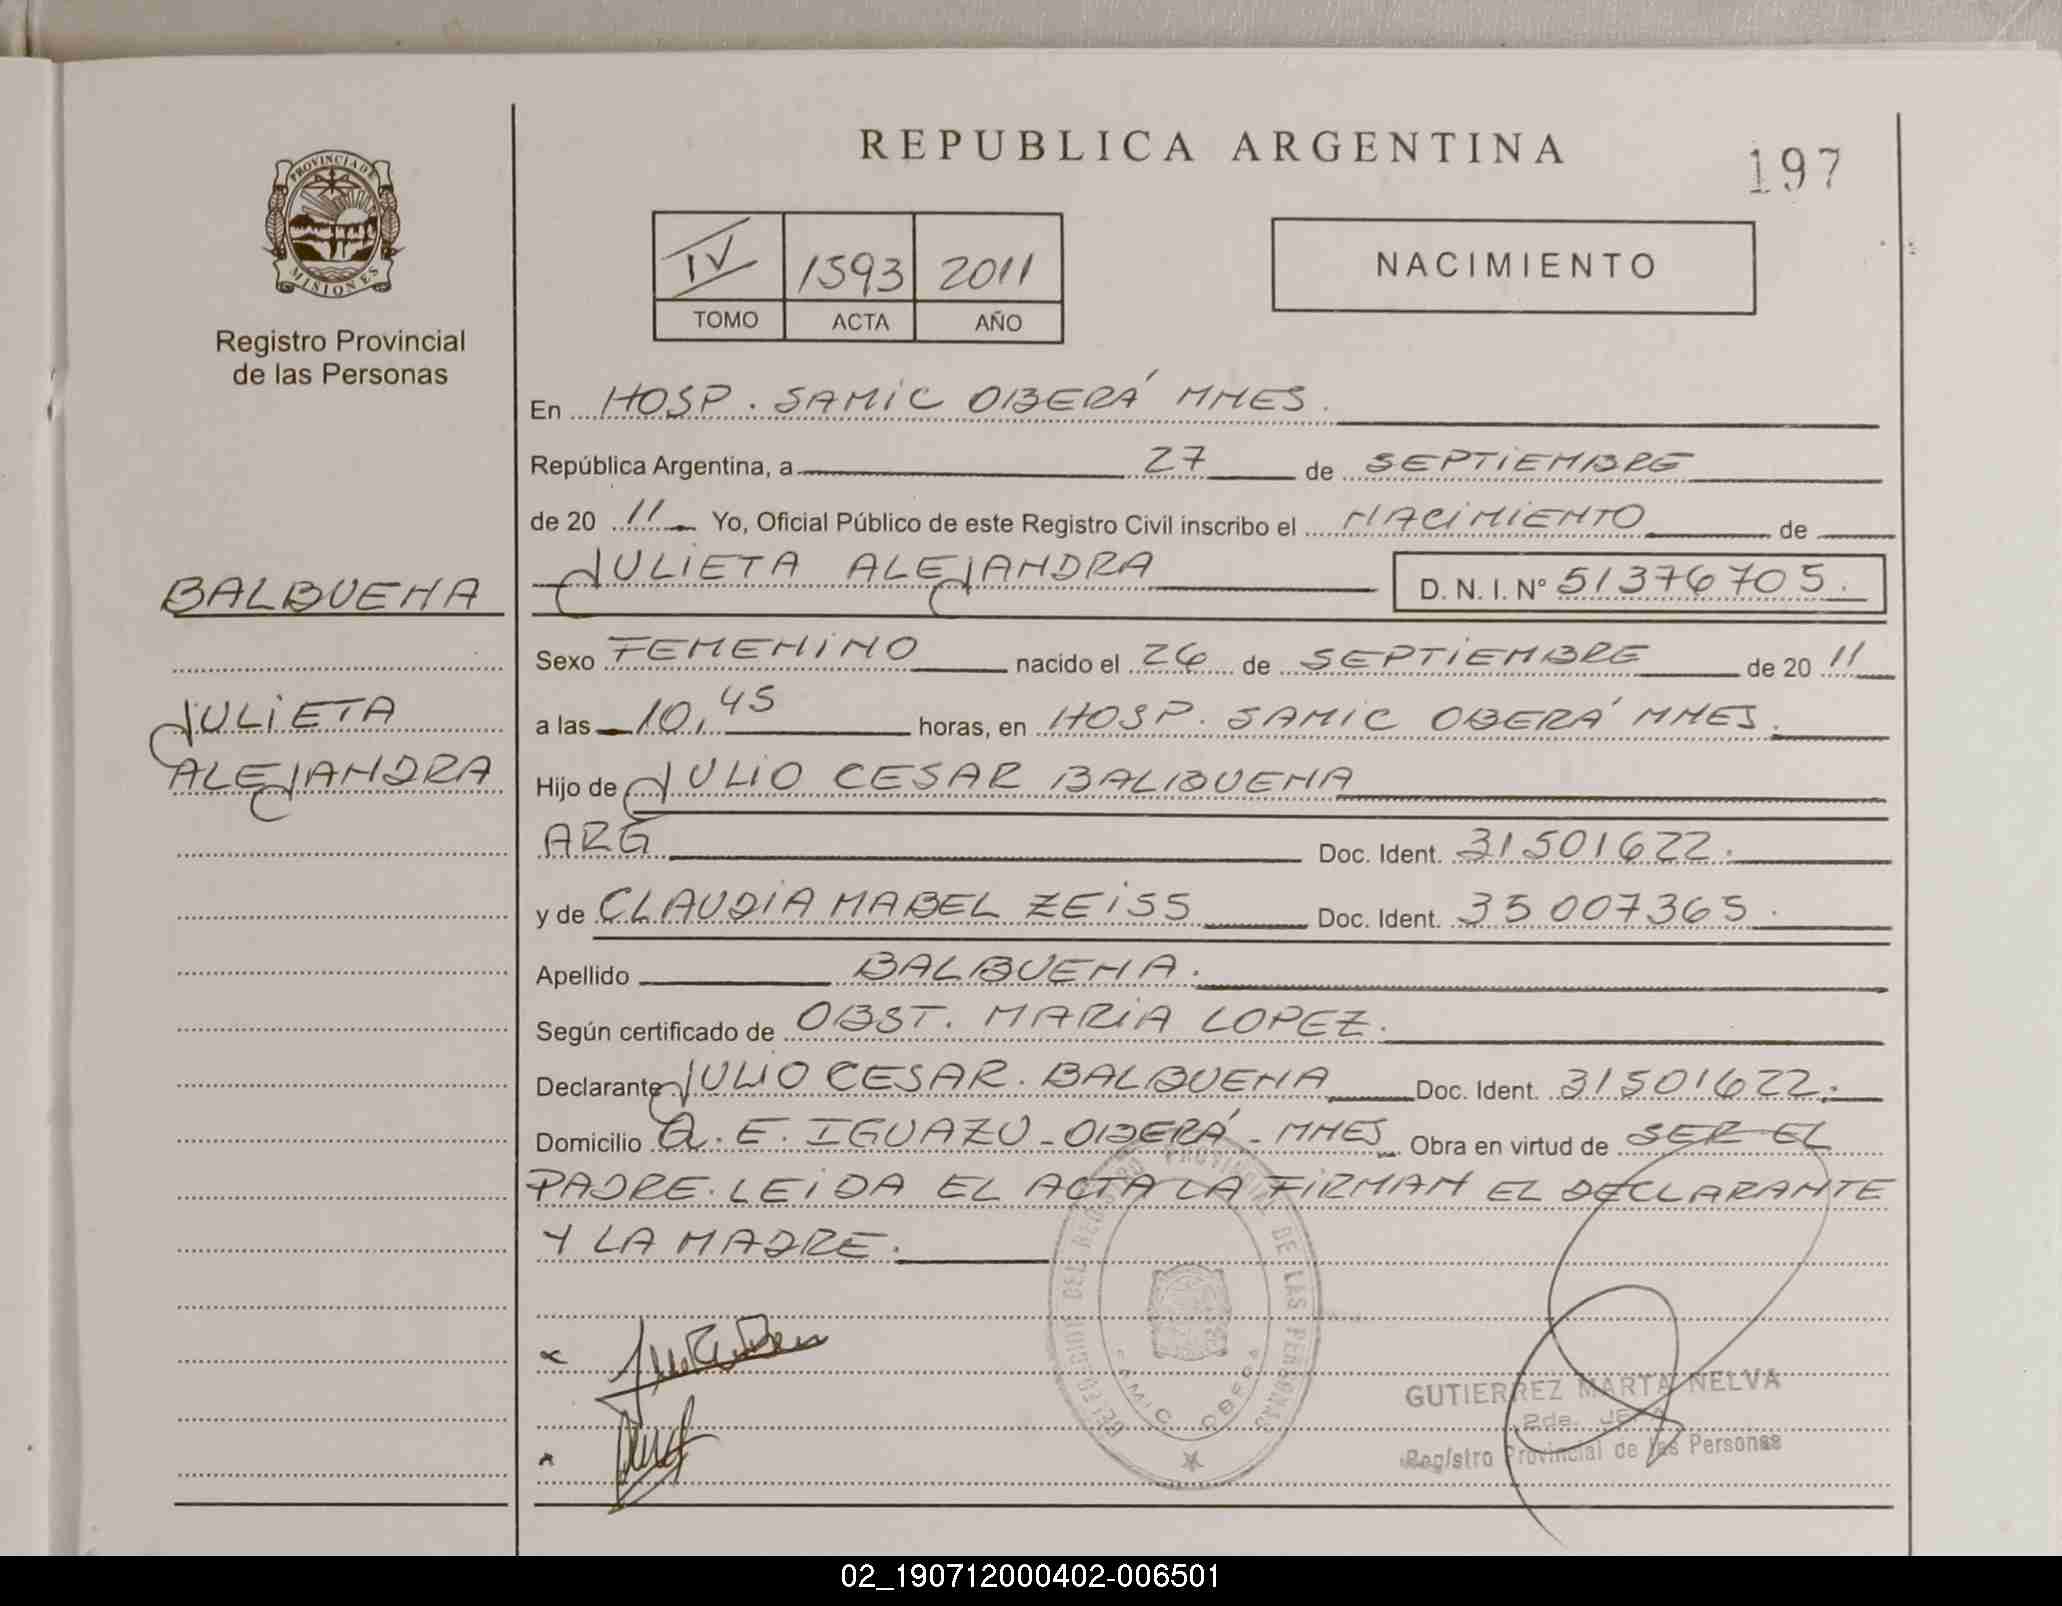 REPUBLICA ARGENTINA
197
PROVINCIA DE
MISIONES
Registro Provincial
de las Personas
IV 1593 2011
TOMO ACTA AÑO
NACIMIENTO
En HOSP. SAMIC OBERÁ MNES.
República Argentina, a 27 de SEPTIEMBRE
de 20 11 Yo, Oficial Público de este Registro Civil inscribo el NACIMIENTO de
JULIETA ALEJANDRA D. N. I. N° 51376705.
BALBUENA
JULIETA
ALEJANDRA
Sexo FEMENINO nacido el 26 de SEPTIEMBRE de 20 11
a las 10,45 horas, en HOSP. SAMIC OBERÁ MNES.
Hijo de JULIO CESAR BALBUENA
ARG Doc. Ident. 31501622.
y de CLAUDIA MABEL ZEISS Doc. Ident. 35007365.
Apellido BALBUENA.
Según certificado de OBST. MARIA LOPEZ.
Declarante JULIO CESAR. BALBUENA Doc. Ident. 31501622.
Domicilio A. E. IGUAZU - OBERÁ - MNES Obra en virtud de SER EL
PADRE. LEIDA EL ACTA LA FIRMAN EL DECLARANTE
Y LA MADRE.
DELEGACION DEL REGISTRO PROVINCIAL DE LAS PERSONAS
SAMIC OBERA
GUTIERREZ MARTA NELVA
2da. JEFA
Registro Provincial de las Personas
02_190712000402-006501